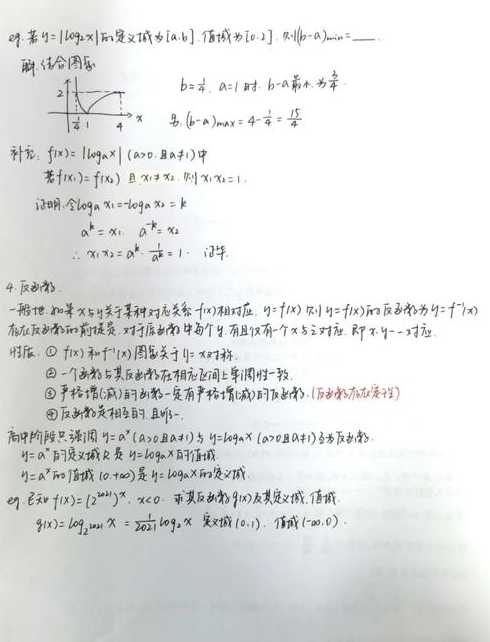 eg. 若y=|log₂x|的定义域为[a,b],值域为[0,2],则(b-a)min=____.
解:结合图象
2
1/4 1 4 x
b=1/4, a=1时, b-a最小,为3/4.
(b-a)max=4-1/4=15/4
补充: f(x)=|logₐx| (a>0,且a≠1)中
若f(x₁)=f(x₂) 且x₁≠x₂,则x₁x₂=1.
证明:令logₐx₁=-logₐx₂=k
aᵏ=x₁, a⁻ᵏ=x₂
∴ x₁x₂=aᵏ·1/aᵏ=1. 证毕.
4. 反函数.
一般地,如果x与y关于某种对应关系f(x)相对应, y=f(x) 则y=f(x)的反函数为y=f⁻¹(x)
存在反函数的前提是,对于原函数中每个y,有且仅有一个x与之对应,即x,y一一对应.
性质: ① f(x)和f⁻¹(x)图象关于y=x对称.
② 一个函数与其反函数在相应区间上单调性一致.
③ 严格增(减)的函数一定有严格增(减)的反函数.(反函数存在定性)
④ 反函数是相互的,且唯一.
高中阶段只强调y=aˣ(a>0且a≠1)与y=logₐx(a>0且a≠1)互为反函数.
y=aˣ的定义域R是y=logₐx的值域.
y=aˣ的值域(0,+∞)是y=logₐx的定义域.
eg.已知f(x)=(2²⁰²¹)ˣ, x<0. 求其反函数g(x)及其定义域,值域.
g(x)=log₂²⁰²¹x=1/2021 log₂x 定义域(0,1), 值域(-∞,0).